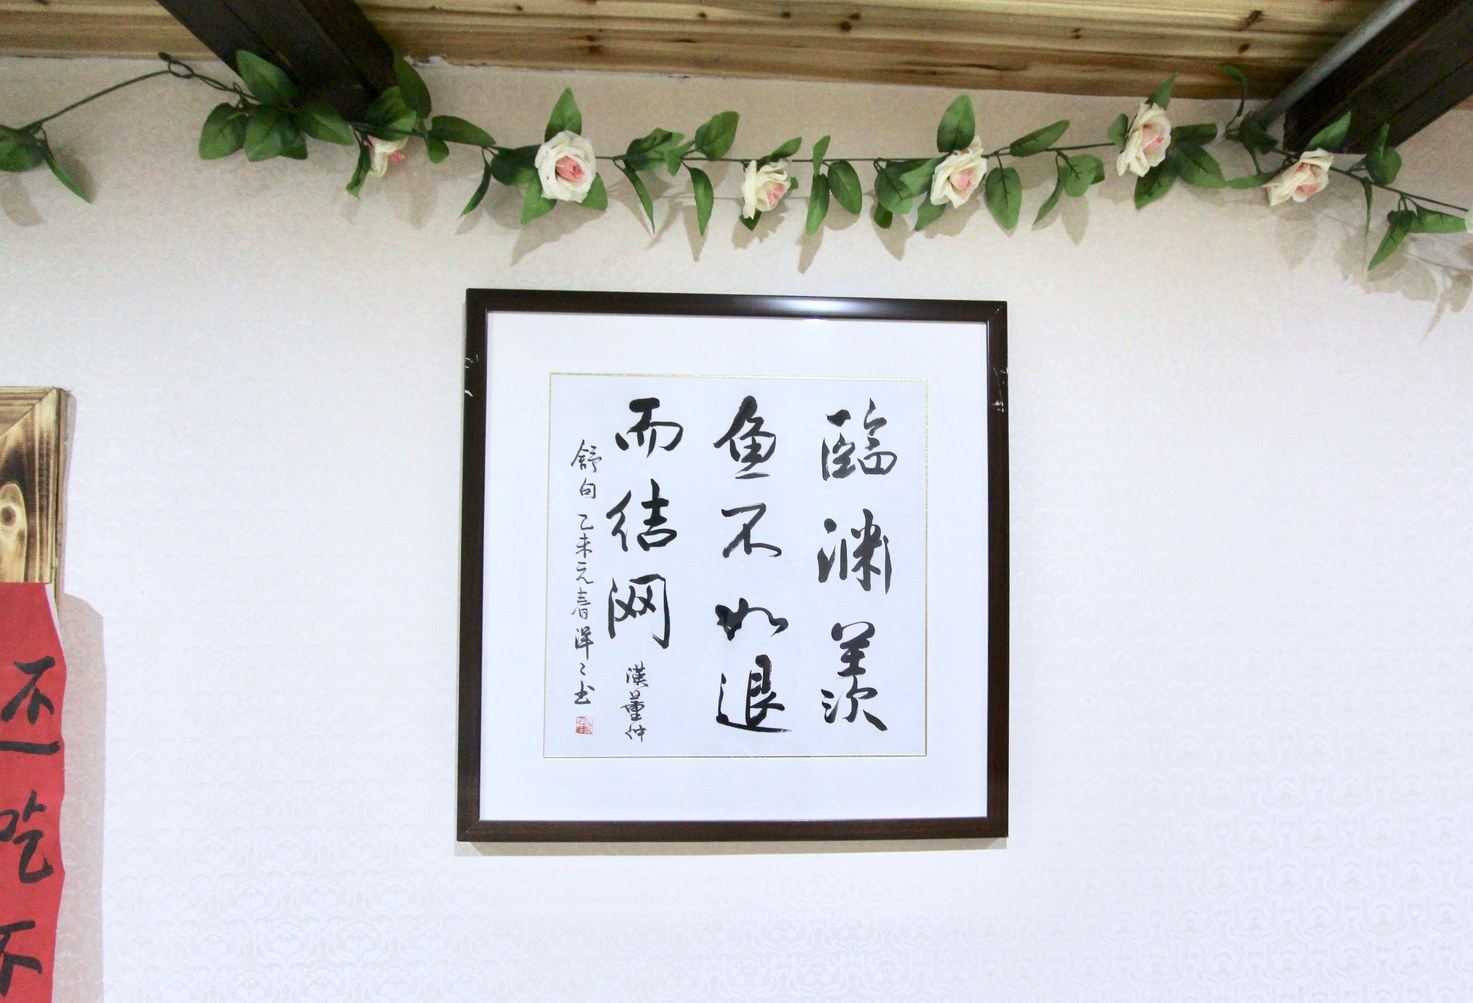 臨渊羡
鱼不如退
而结网
漢董仲
舒句乙未元春洋〻书
不
吃
不